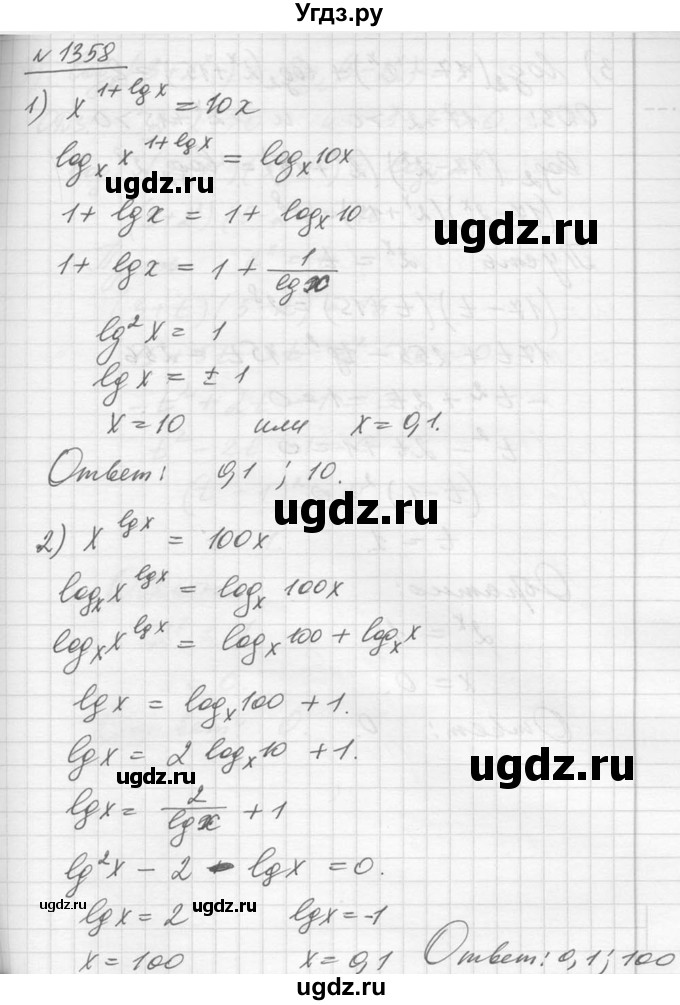 Угдз.ру
№ 1358
1) x^{1+lgx} = 10x
log_x x^{1+lgx} = log_x 10x
ugdz.ru
ugdz.ru
1 + lgx = 1 + log_x 10
1 + lgx = 1 + 1/lgx
lg²x = 1
lgx = ± 1
x = 10 или x = 0,1.
Ответ: 0,1 ; 10.
ugdz.ru
2) x^{lgx} = 100x
log_x x^{lgx} = log_x 100x
log_x x^{lgx} = log_x 100 + log_x x
lgx = log_x 100 + 1.
lgx = 2 log_x 10 + 1.
ugdz.ru
ugdz.ru
lgx = 2/lgx + 1
lg²x - 2 - lgx = 0.
ugdz.ru
ugdz.ru
lgx = 2 lgx = -1
x = 100 x = 0,1 Ответ: 0,1 ; 100
ugdz.ru